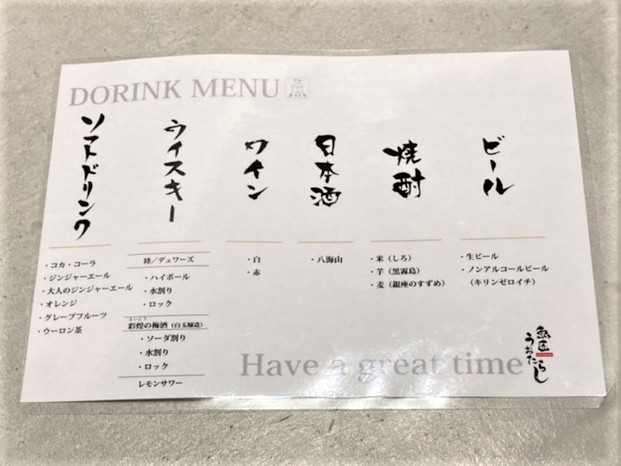 DORINK MENU 魚
ビール
・生ビール
・ノンアルコールビール
（キリンゼロイチ）
焼酎
・米（しろ）
・芋（黒霧島）
・麦（銀座のすずめ）
日本酒
・八海山
ワイン
・白
・赤
ウイスキー
陸／デュワーズ
・ハイボール
・水割り
・ロック
彩煌の梅酒（白玉醸造）
・ソーダ割り
・水割り
・ロック
レモンサワー
ソフトドリンク
・コカ・コーラ
・ジンジャーエール
・大人のジンジャーエール
・オレンジ
・グレープフルーツ
・ウーロン茶
Have a great time
魚匠
うおたらし